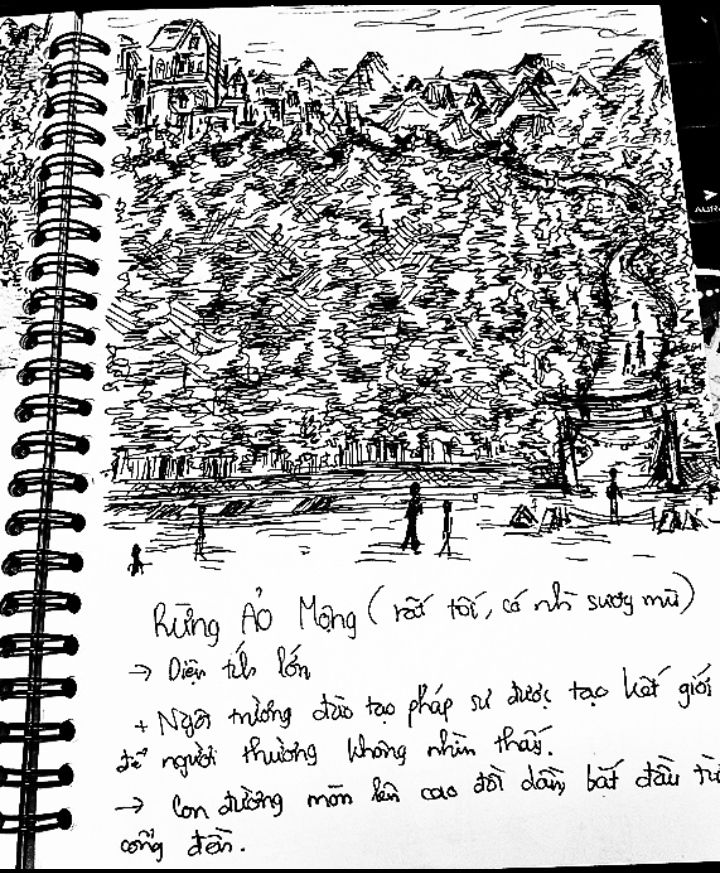 AUR
Rừng Ảo Mộng ( rất tối, có nh sương mù )
→ Diện tích lớn
+ Ngôi trường đào tạo pháp sư được tạo kết giới
để người thường không nhìn thấy.
→ Con đường mòn lên cao đồi dần, bắt đầu từ
cổng đền.